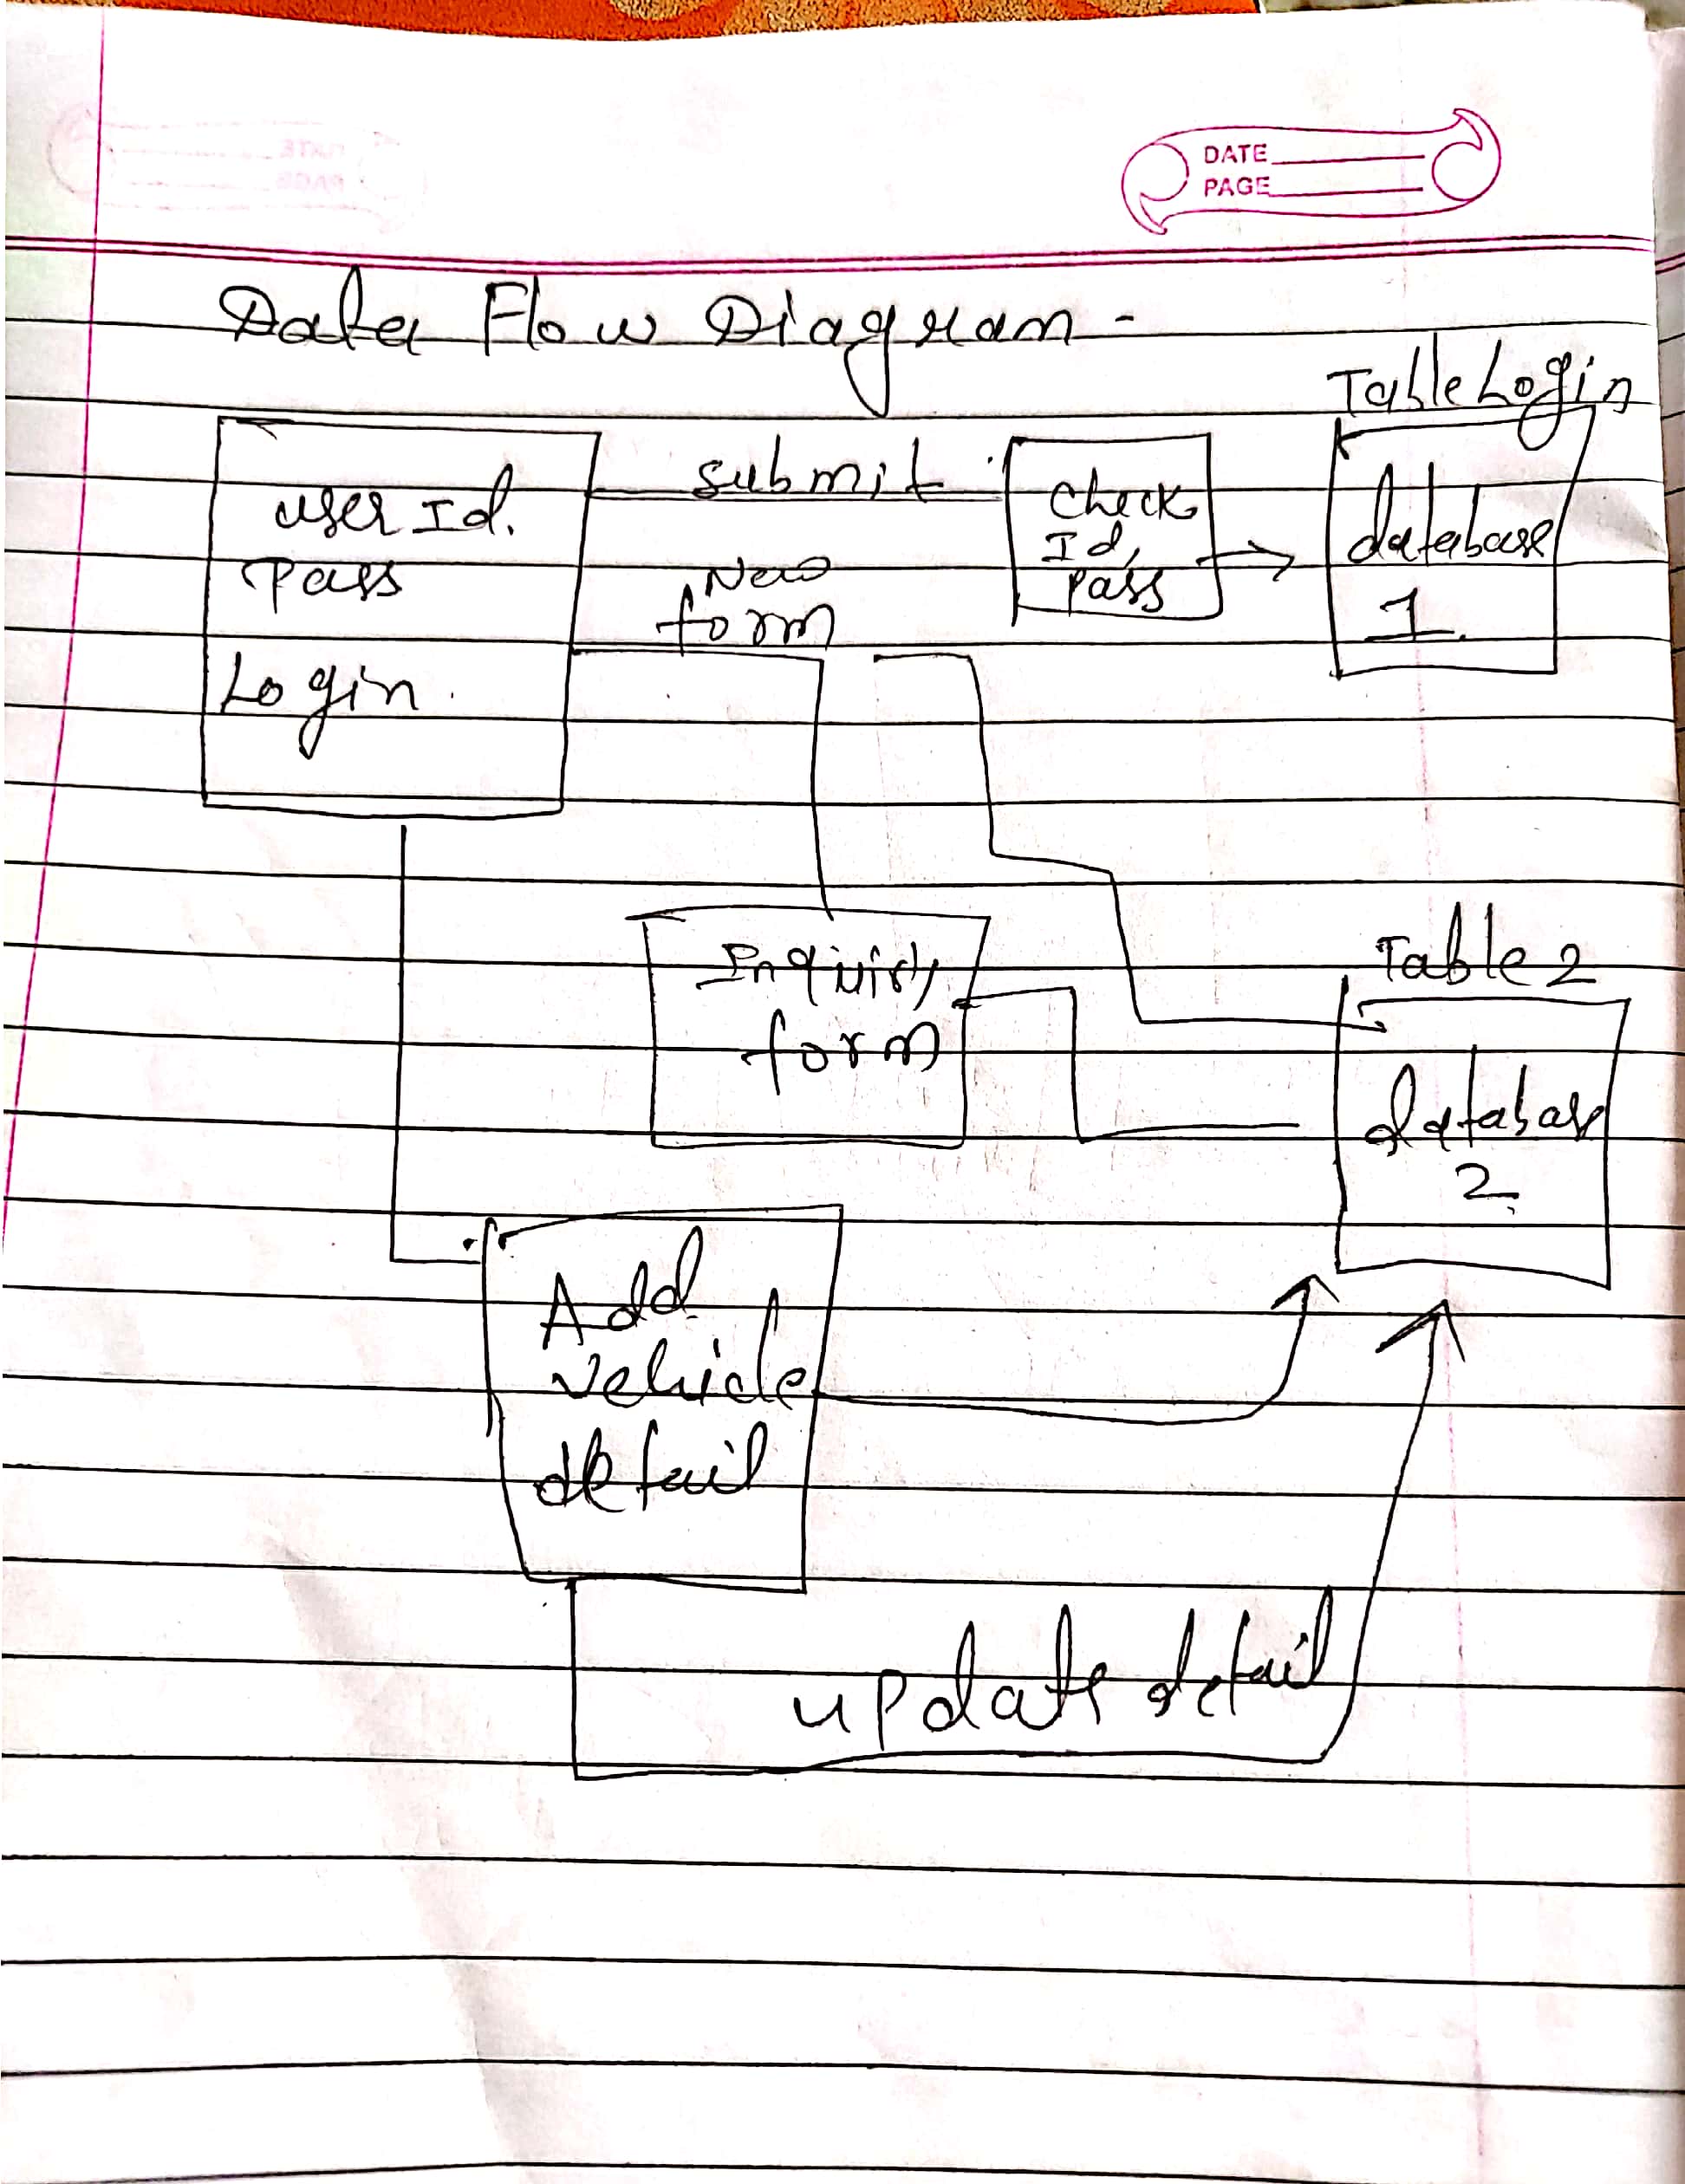 DATE
PAGE
Data Flow Diagram -
Table Login
user Id.
Pass
Login.
submit
New
form
Check
Id,
Pass
database
1
Inquiry
form
Table 2
database
2
Add
vehicle
detail
update detail